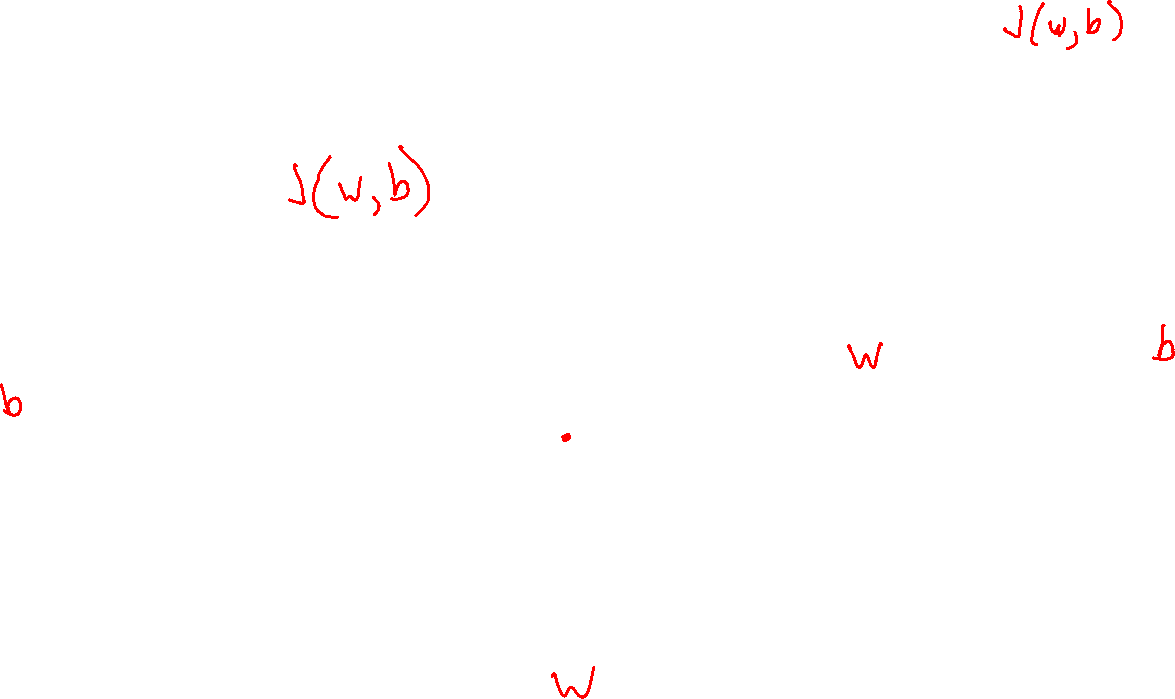 J(w,b)
J(w,b)
w
b
b
w